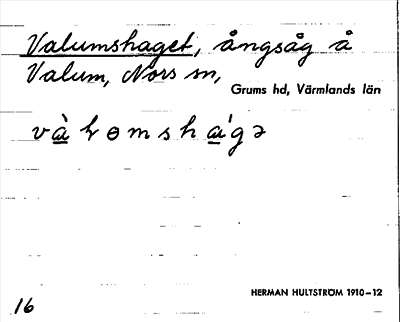 Valumshaget, ångsåg å
Valum, Nors sn,
Grums hd, Värmlands län
vàɫɵmshágə
HERMAN HULTSTRÖM 1910–12
16